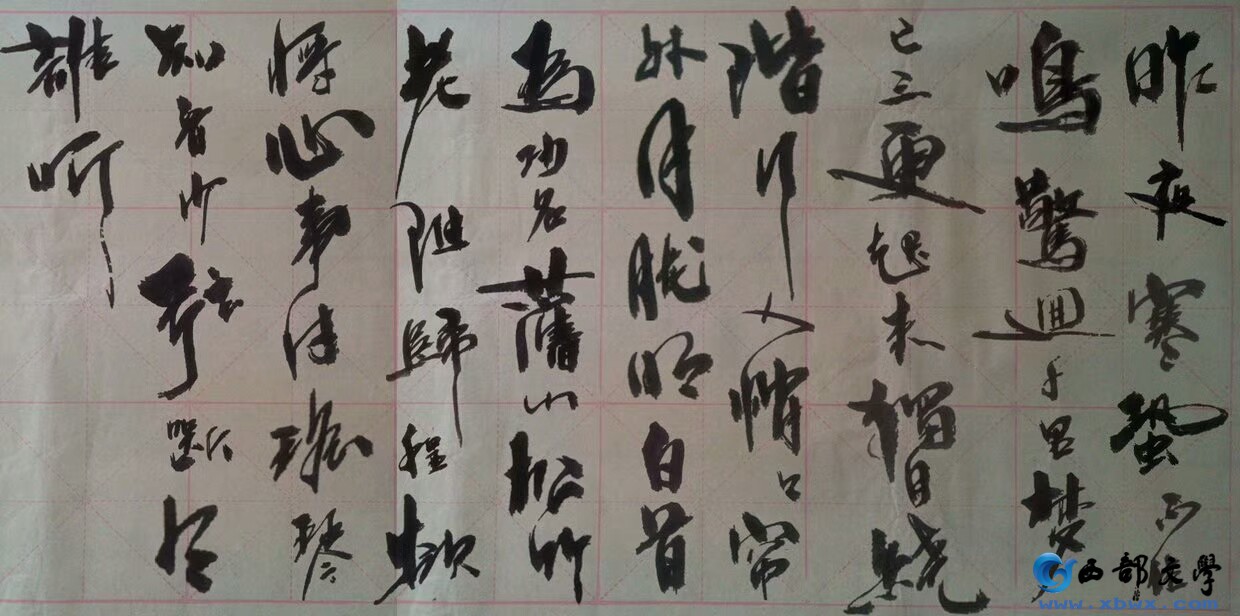 昨夜寒蛩不住
鳴驚迴千里梦
已三更起来獨自繞
階行人悄々帘
外月胧明白首
為功名舊山松竹
老阻歸程欲
將心事付瑶琴
知音少弦断有
誰听
西部文學
www.xbwx.com